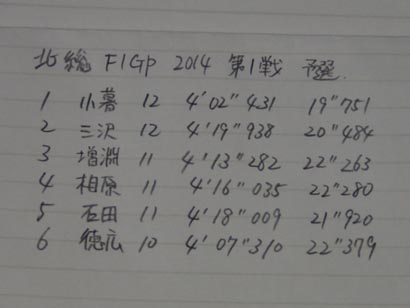 北総 F1GP 2014 第1戦 予選.
1 小暮 12 4'02"431 19"751
2 三沢 12 4'19"938 20"484
3 増淵 11 4'13"282 22"263
4 相原 11 4'16"035 22"280
5 石田 11 4'18"009 21"920
6 徳広 10 4'07"310 22"379